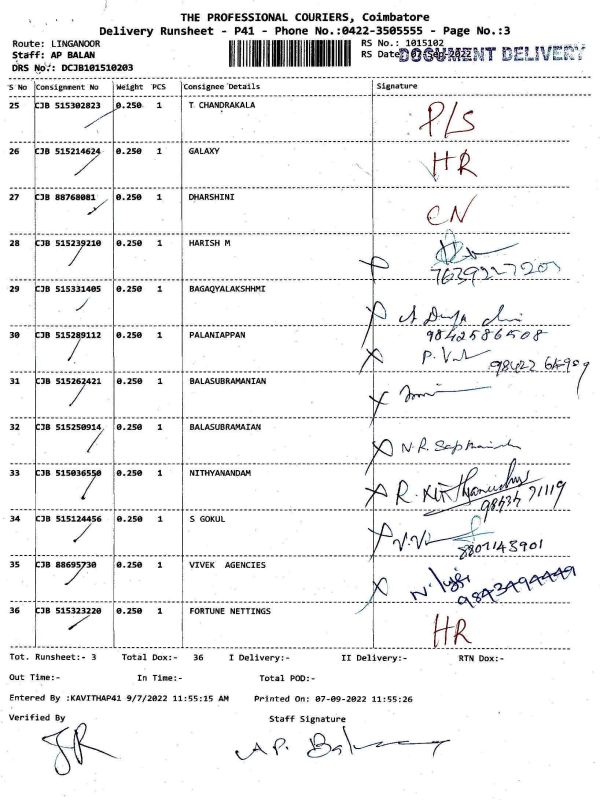 THE PROFESSIONAL COURIERS, Coimbatore
Delivery Runsheet - P41 - Phone No.:0422-3505555 - Page No.:3
Route: LINGANOOR RS No.: 1015102
Staff: AP BALAN RS Date: DOCUMENT DELIVERY
DRS No.: DCJB101510203
S No Consignment No Weight PCS Consignee Details Signature
25 CJB 515302823 0.250 1 T CHANDRAKALA P/S
26 CJB 515214624 0.250 1 GALAXY HR
27 CJB 88768081 0.250 1 DHARSHINI CN
28 CJB 515239210 0.250 1 HARISH M
7639227207
29 CJB 515331405 0.250 1 BAGAQYALAKSHHMI
9842586508
30 CJB 515289112 0.250 1 PALANIAPPAN
31 CJB 515262421 0.250 1 BALASUBRAMANIAN
32 CJB 515250914 0.250 1 BALASUBRAMAIAN N.R.
33 CJB 515036550 0.250 1 NITHYANANDAM R.
34 CJB 515124456 0.250 1 S GOKUL
8807143901
35 CJB 88695730 0.250 1 VIVEK AGENCIES
9843494449
36 CJB 515323220 0.250 1 FORTUNE NETTINGS HR
Tot. Runsheet:- 3 Total Dox:- 36 I Delivery:- II Delivery:- RTN Dox:-
Out Time:- In Time:- Total POD:-
Entered By :KAVITHAP41 9/7/2022 11:55:15 AM Printed On: 07-09-2022 11:55:26
Verified By Staff Signature
JR A.P. Balan